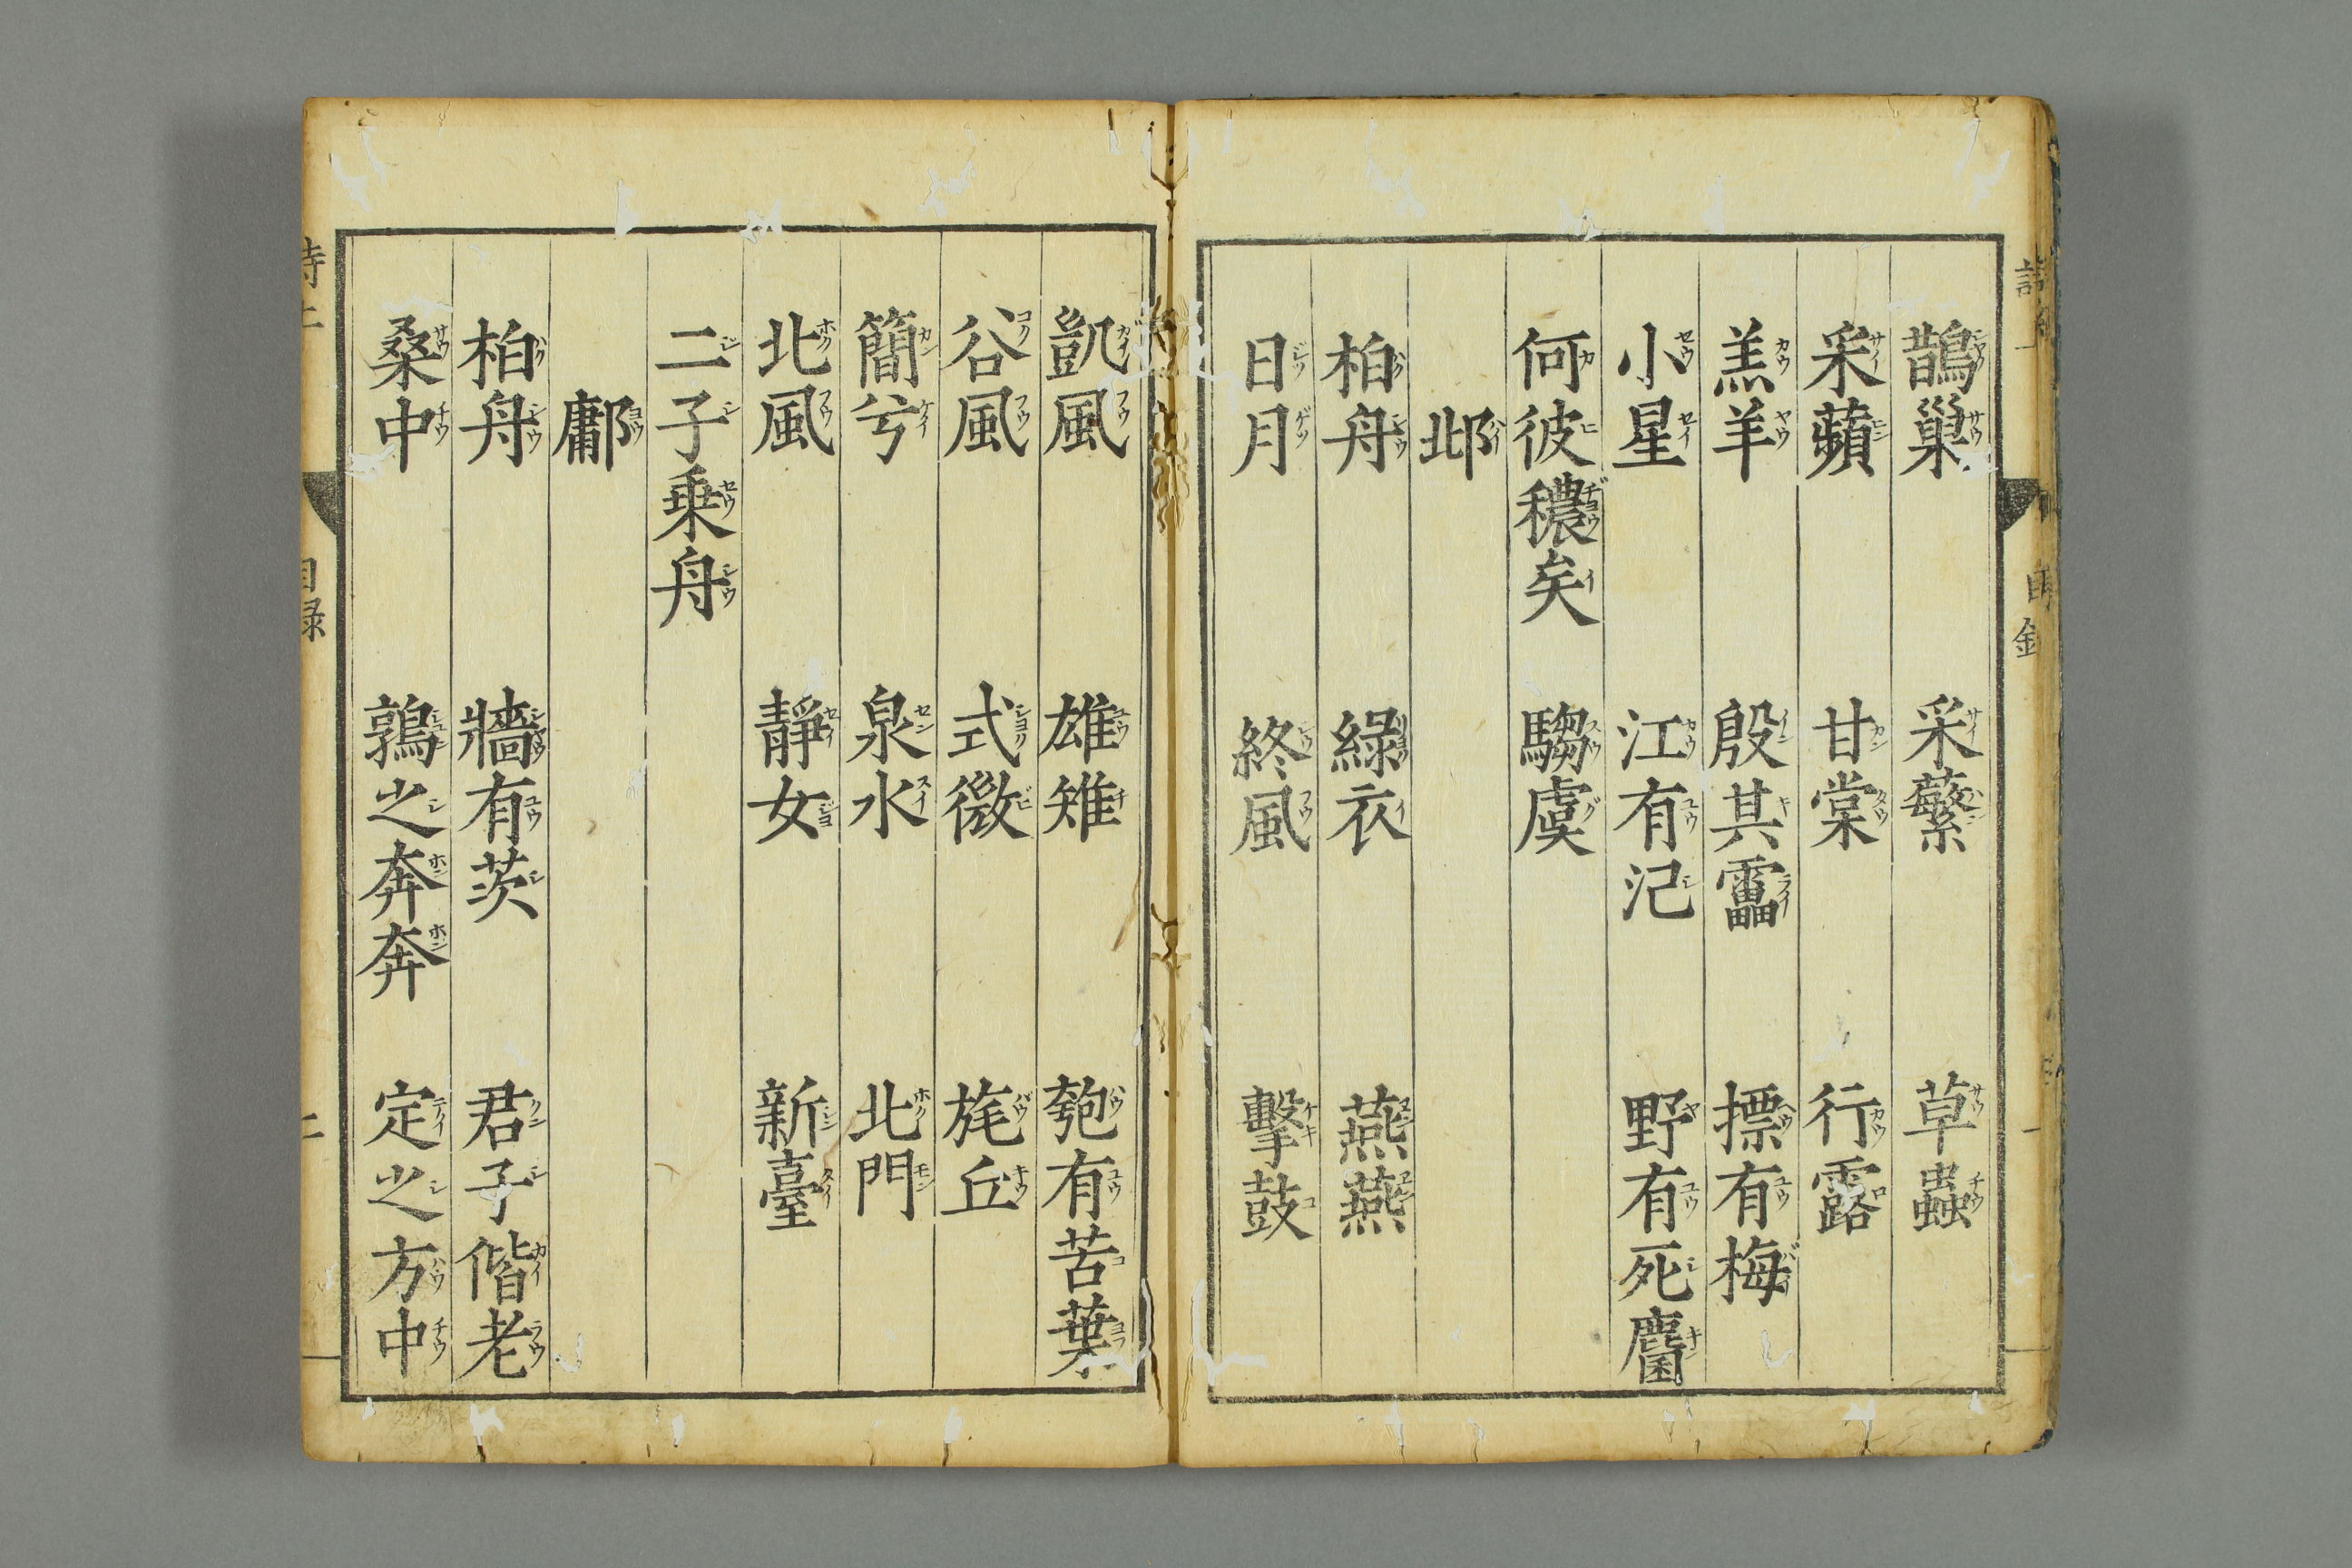 鵲巢 采蘩 草蟲
采蘋 甘棠 行露
羔羊 殷其靁 摽有梅
小星 江有汜 野有死麕
何彼穠矣 騶虞
邶
柏舟 綠衣 燕燕
日月 終風 擊鼓
凱風 雄雉 匏有苦葉
谷風 式微 旄丘
簡兮 泉水 北門
北風 靜女 新臺
二子乗舟
鄘
柏舟 牆有茨 君子偕老
桑中 鶉之奔奔 定之方中
目録
二